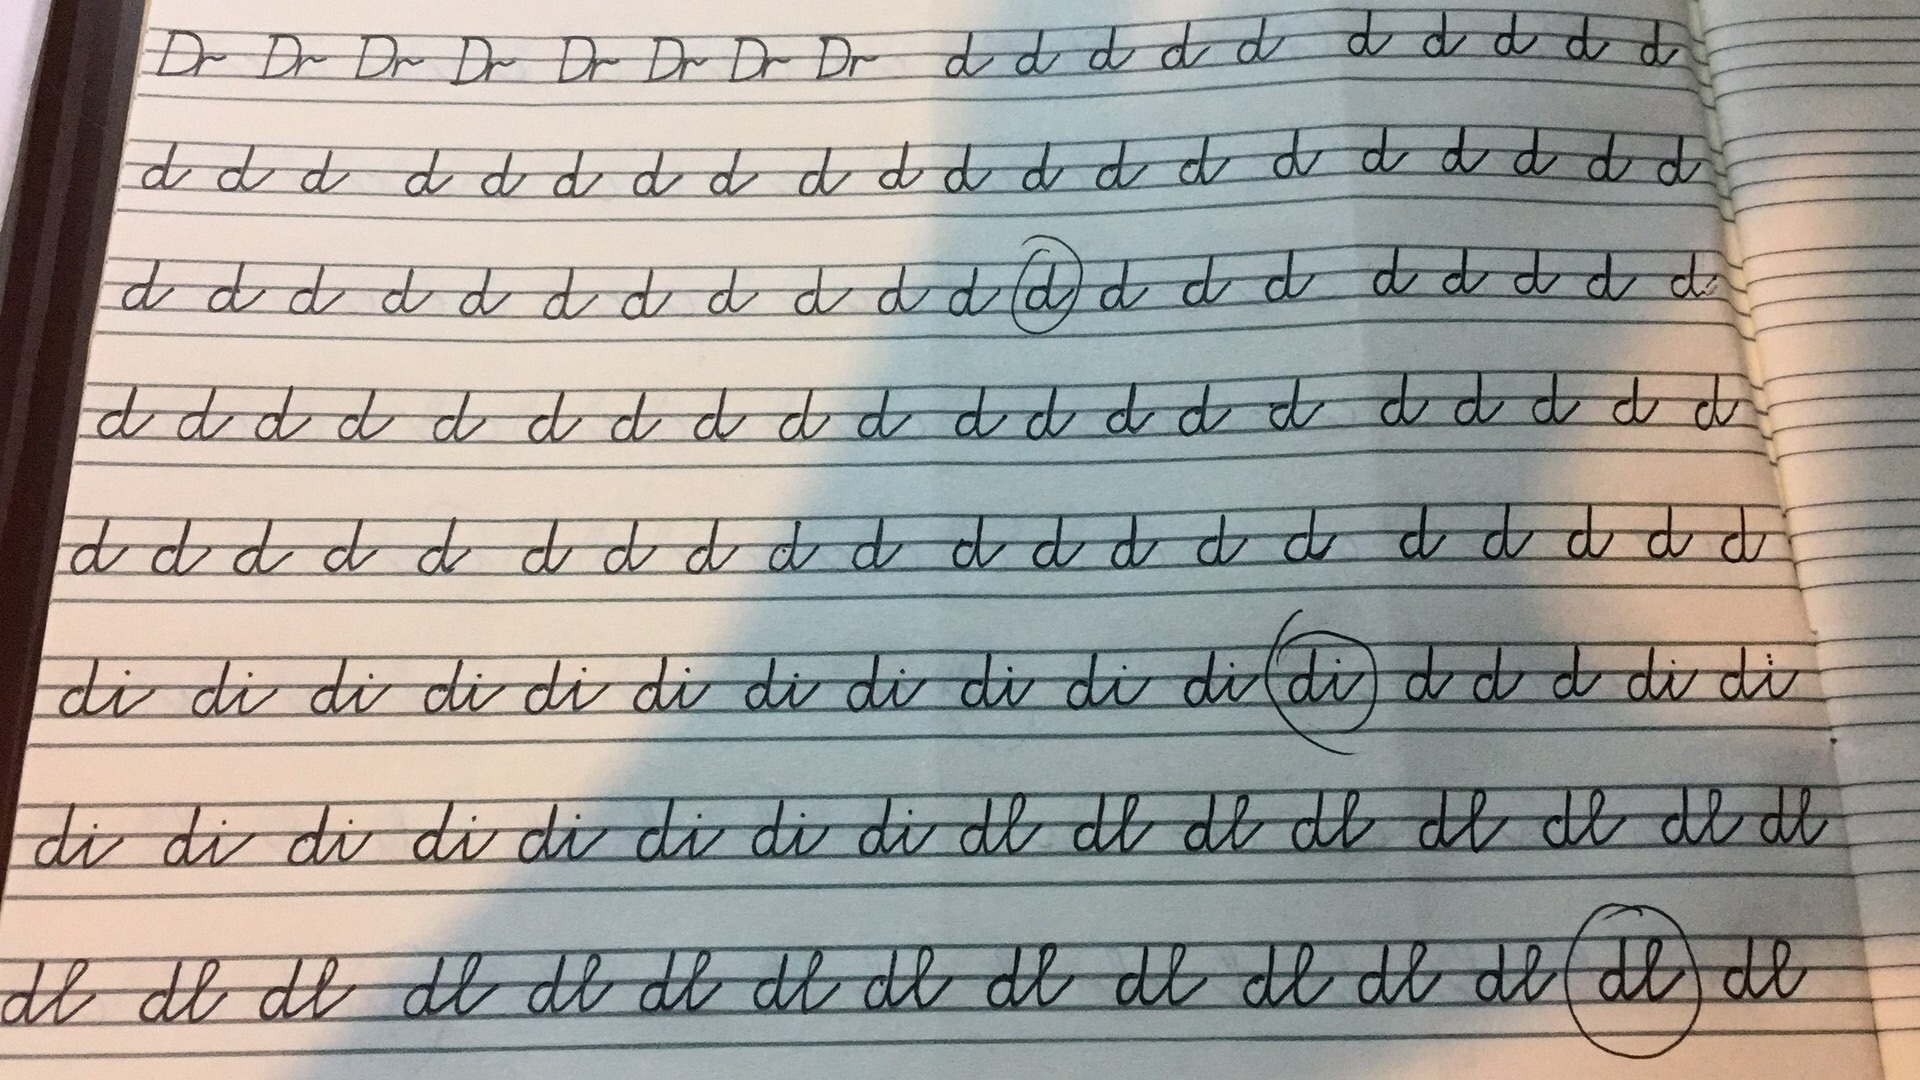 Dr Dr Dr Dr Dr Dr Dr Dr d d d d d d d d d d
d d d d d d d d d d d d d d d d d d d d
d d d d d d d d d d d d d d d d d d d d
d d d d d d d d d d d d d d d d d d d d
d d d d d d d d d d d d d d d d d d d d
di di di di di di di di di di di di d d d di di
di di di di di di di di dl dl dl dl dl dl dl dl
dl dl dl dl dl dl dl dl dl dl dl dl dl dl dl